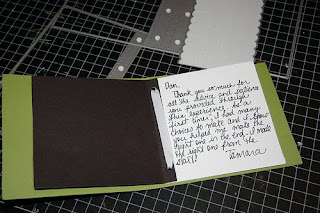 Dan,
Thank you so much for
all the advice and patience
you provided through
this experience, be a
"first timer", I had many
choices to make and I know
you helped me make the
right one in the end. I made
the right one from the
start!
Tamara